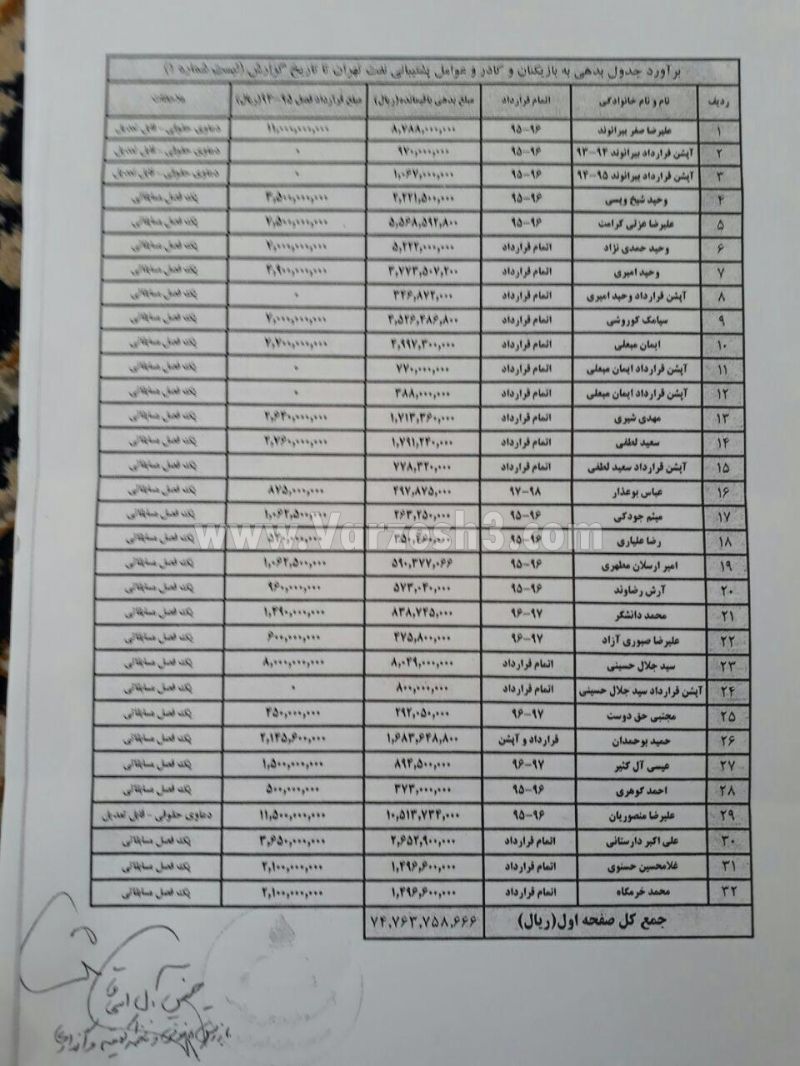 برآورد جدول بدهی به بازیکنان و کادر و عوامل پشتیبانی نفت تهران تا تاریخ گزارش (لیست شماره ۱)
ردیف نام و نام خانوادگی اتمام قرارداد مبلغ بدهی باقیمانده(ریال) مبلغ قرارداد فصل ۹۵-۹۴(ریال) ملاحظات
۱ علیرضا صفر بیرانوند ۹۵-۹۶ ۸,۷۸۸,۰۰۰,۰۰۰ ۱۱,۰۰۰,۰۰۰,۰۰۰ دعاوی حقوقی - قابل تعدیل
۲ آپشن قرارداد بیرانوند ۹۴-۹۳ ۹۵-۹۶ ۹۷۰,۰۰۰,۰۰۰ ۰ دعاوی حقوقی - قابل تعدیل
۳ آپشن قرارداد بیرانوند ۹۵-۹۴ ۹۵-۹۶ ۱,۰۶۷,۰۰۰,۰۰۰ ۰ دعاوی حقوقی - قابل تعدیل
۴ وحید شیخ ویسی ۹۵-۹۶ ۲,۲۲۱,۵۰۰,۰۰۰ ۳,۵۰۰,۰۰۰,۰۰۰ یک فصل مسابقاتی
۵ علیرضا عزتی کرامت ۹۵-۹۶ ۵,۵۶۸,۵۹۲,۸۰۰ ۷,۵۰۰,۰۰۰,۰۰۰ یک فصل مسابقاتی
۶ وحید حمدی نژاد اتمام قرارداد ۵,۲۲۲,۰۰۰,۰۰۰ ۷,۰۰۰,۰۰۰,۰۰۰ یک فصل مسابقاتی
۷ وحید امیری اتمام قرارداد ۳,۷۷۳,۵۰۷,۲۰۰ ۳,۹۰۰,۰۰۰,۰۰۰ یک فصل مسابقاتی
۸ آپشن قرارداد وحید امیری اتمام قرارداد ۳۴۶,۸۷۲,۰۰۰ ۰ یک فصل مسابقاتی
۹ سیامک کوروشی اتمام قرارداد ۴,۵۲۶,۴۸۶,۸۰۰ ۷,۰۰۰,۰۰۰,۰۰۰ یک فصل مسابقاتی
۱۰ ایمان مبعلی اتمام قرارداد ۴,۹۹۷,۳۰۰,۰۰۰ یک فصل مسابقاتی
۱۱ آپشن قرارداد ایمان مبعلی اتمام قرارداد ۷۷۰,۰۰۰,۰۰۰ ۰ یک فصل مسابقاتی
۱۲ آپشن قرارداد ایمان مبعلی اتمام قرارداد ۳۸۸,۰۰۰,۰۰۰ ۰ یک فصل مسابقاتی
۱۳ مهدی شیری اتمام قرارداد ۱,۷۱۳,۳۶۰,۰۰۰ ۲,۶۴۰,۰۰۰,۰۰۰ یک فصل مسابقاتی
۱۴ سعید لطفی اتمام قرارداد ۱,۷۹۱,۲۴۰,۰۰۰ ۲,۷۶۰,۰۰۰,۰۰۰ یک فصل مسابقاتی
۱۵ آپشن قرارداد سعید لطفی اتمام قرارداد ۷۷۸,۳۲۰,۰۰۰ یک فصل مسابقاتی
۱۶ عباس بوعذار ۹۷-۹۸ ۴۹۷,۸۷۵,۰۰۰ ۸۷۵,۰۰۰,۰۰۰ یک فصل مسابقاتی
۱۷ میثم جودکی ۹۵-۹۶ ۲۶۳,۲۵۰,۰۰۰ ۱,۰۶۲,۵۰۰,۰۰۰ یک فصل مسابقاتی
www.Varzesh3.com
۱۸ رضا علیاری ۹۵-۹۶ یک فصل مسابقاتی
۱۹ امیر ارسلان مطهری ۹۵-۹۶ ۵۹۰,۳۷۷,۰۶۶ ۱,۰۶۲,۵۰۰,۰۰۰ یک فصل مسابقاتی
۲۰ آرش رضاوند ۹۵-۹۶ ۵۷۳,۰۴۰,۰۰۰ ۹۶۰,۰۰۰,۰۰۰ یک فصل مسابقاتی
۲۱ محمد دانشگر ۹۶-۹۷ ۸۳۸,۷۴۵,۰۰۰ ۱,۴۹۰,۰۰۰,۰۰۰ یک فصل مسابقاتی
۲۲ علیرضا صبوری آزاد ۹۶-۹۷ ۴۷۵,۸۰۰,۰۰۰ ۶۰۰,۰۰۰,۰۰۰ یک فصل مسابقاتی
۲۳ سید جلال حسینی اتمام قرارداد ۸,۰۴۹,۰۰۰,۰۰۰ ۸,۰۰۰,۰۰۰,۰۰۰ یک فصل مسابقاتی
۲۴ آپشن قرارداد سید جلال حسینی اتمام قرارداد ۸۰۰,۰۰۰,۰۰۰ ۰ یک فصل مسابقاتی
۲۵ مجتبی حق دوست ۹۶-۹۷ ۲۹۲,۰۵۰,۰۰۰ ۴۵۰,۰۰۰,۰۰۰ یک فصل مسابقاتی
۲۶ حمید بوحمدان قرارداد و آپشن ۱,۶۸۳,۶۴۸,۸۰۰ ۲,۱۴۵,۶۰۰,۰۰۰ یک فصل مسابقاتی
۲۷ عیسی آل کثیر ۹۶-۹۷ ۸۹۴,۵۰۰,۰۰۰ ۱,۵۰۰,۰۰۰,۰۰۰ یک فصل مسابقاتی
۲۸ احمد گوهری ۹۵-۹۶ ۳۷۳,۰۰۰,۰۰۰ ۵۰۰,۰۰۰,۰۰۰ یک فصل مسابقاتی
۲۹ علیرضا منصوریان ۹۵-۹۶ ۱۰,۵۱۳,۷۳۴,۰۰۰ ۱۱,۵۰۰,۰۰۰,۰۰۰ دعاوی حقوقی - قابل تعدیل
۳۰ علی اکبر دارستانی اتمام قرارداد ۲,۶۵۲,۹۰۰,۰۰۰ ۳,۶۵۰,۰۰۰,۰۰۰ یک فصل مسابقاتی
۳۱ غلامحسین حسنوی اتمام قرارداد ۱,۴۹۶,۶۰۰,۰۰۰ ۲,۱۰۰,۰۰۰,۰۰۰ یک فصل مسابقاتی
۳۲ محمد خرمگاه اتمام قرارداد ۱,۴۹۶,۶۰۰,۰۰۰ ۲,۱۰۰,۰۰۰,۰۰۰ یک فصل مسابقاتی
جمع کل صفحه اول(ریال) ۷۴,۷۶۳,۷۵۸,۶۶۶